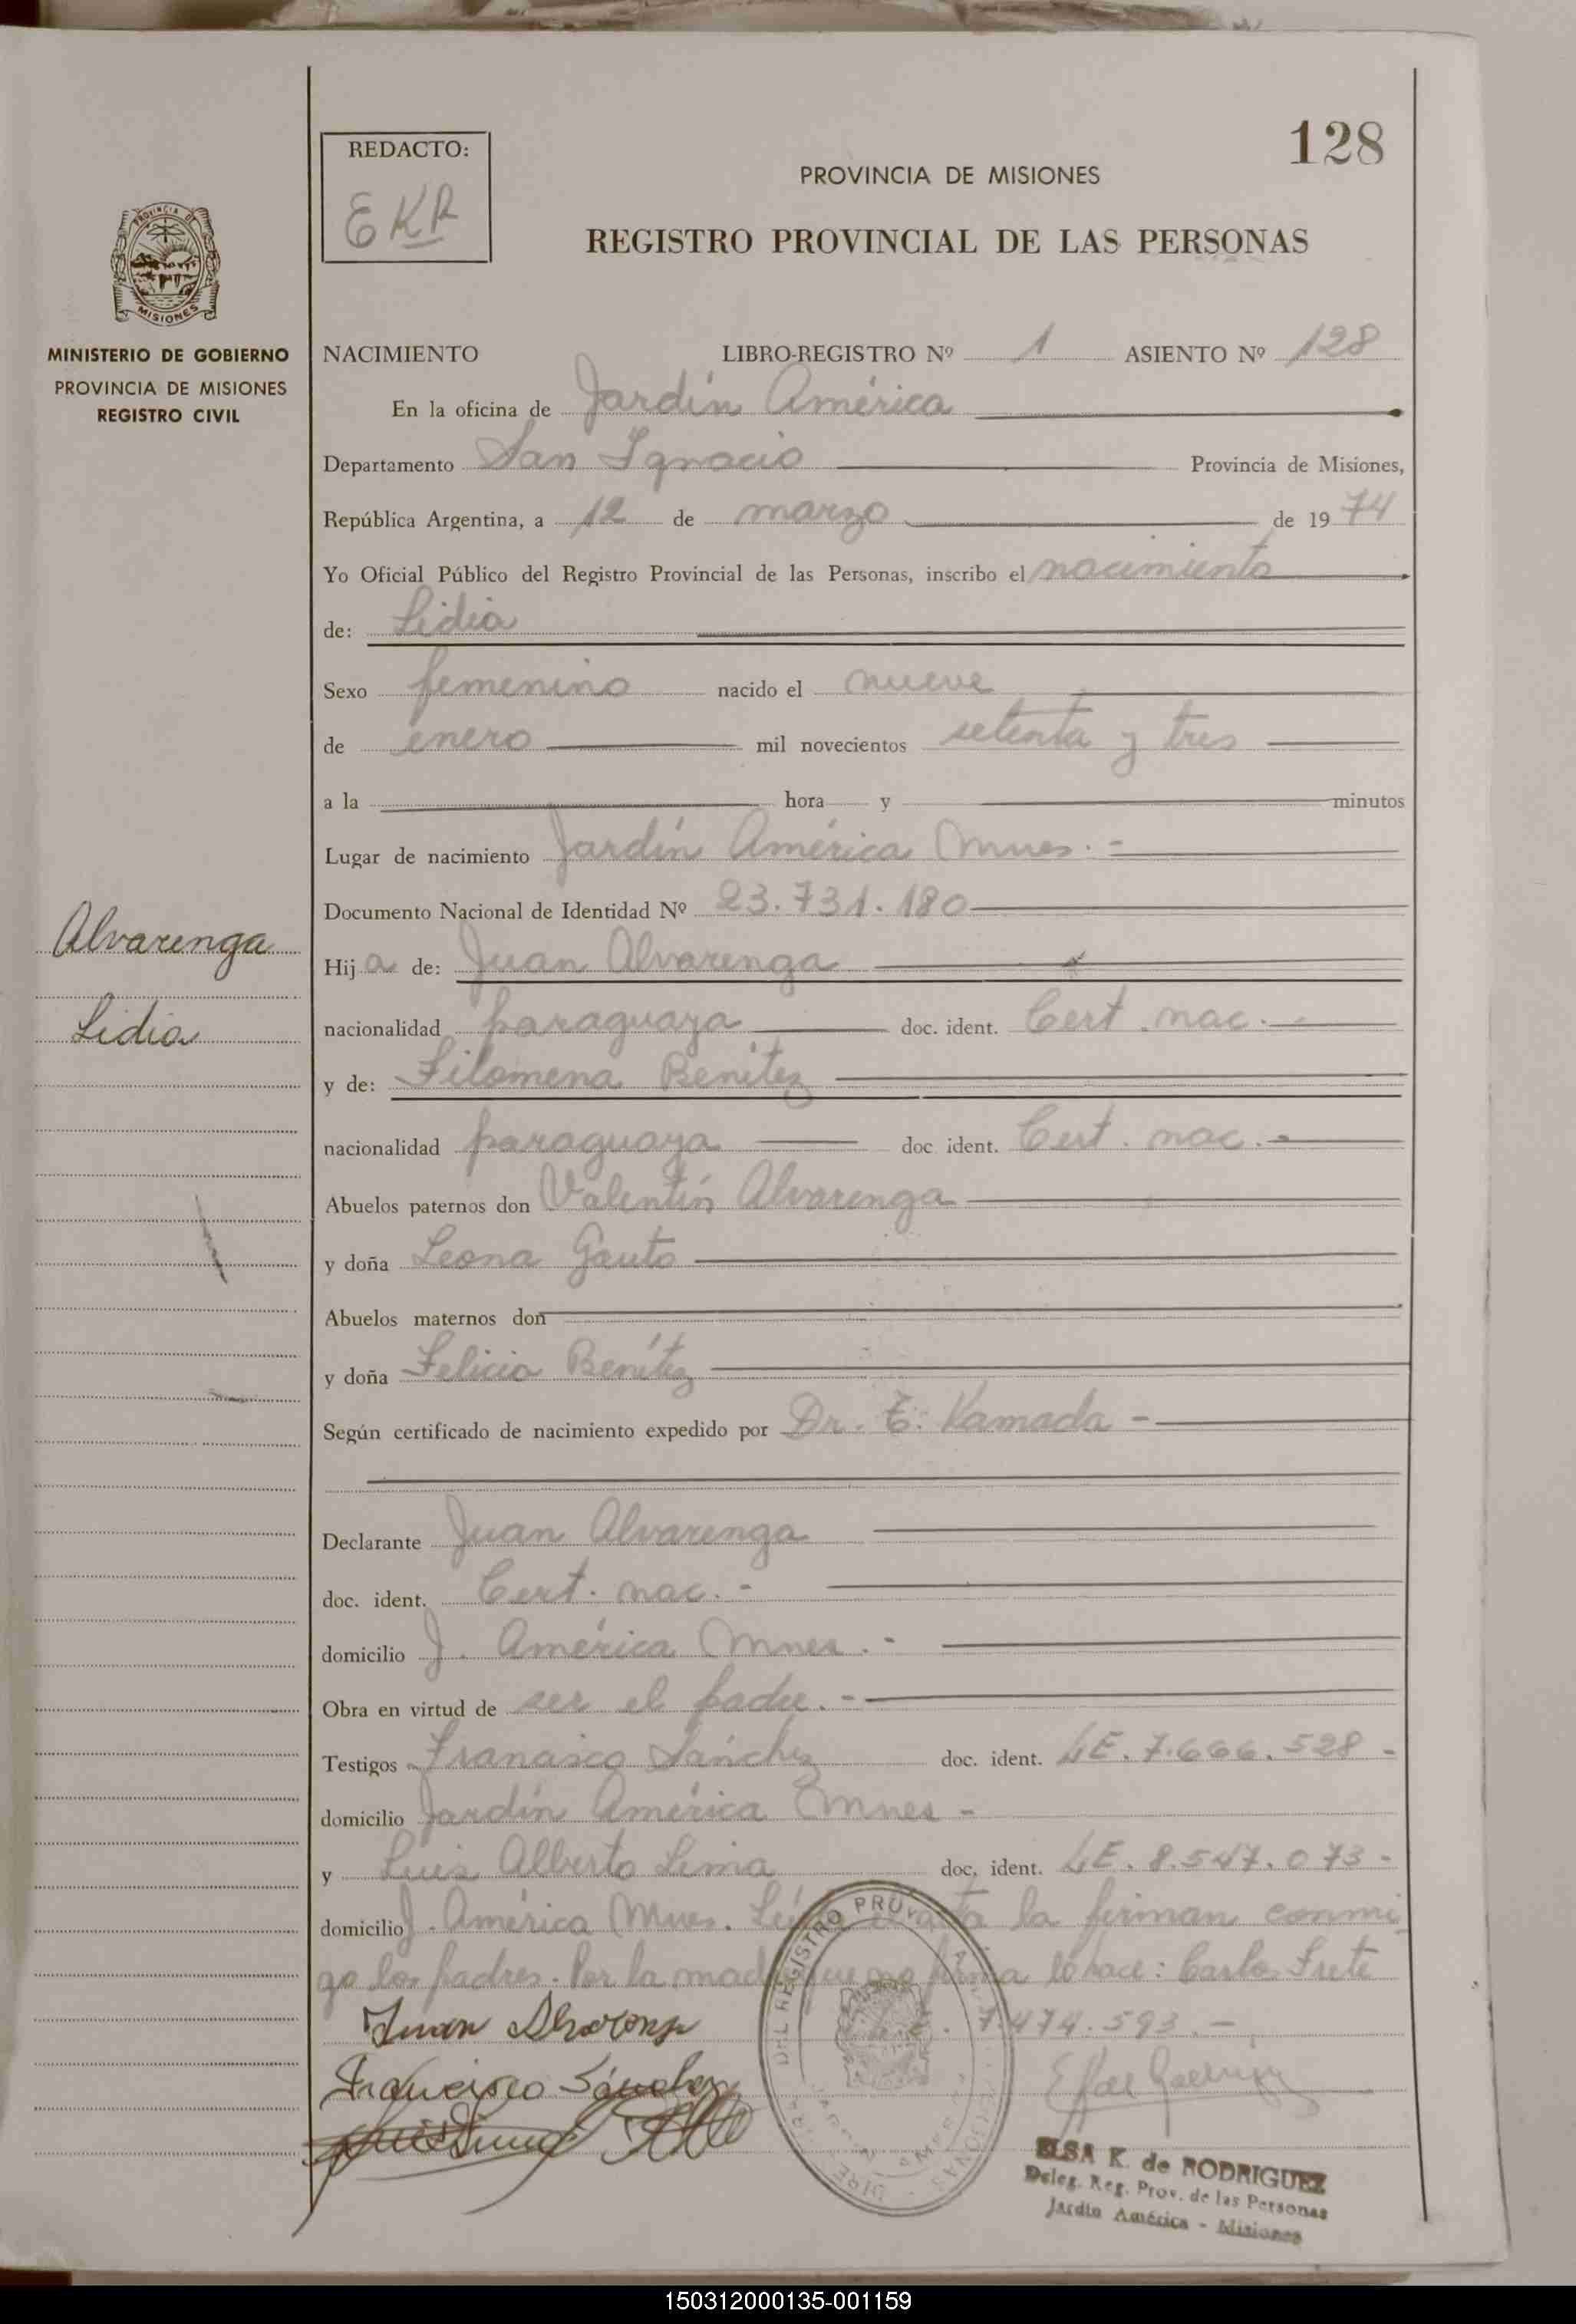 128
REDACTO:
EKR
PROVINCIA DE MISIONES
REGISTRO PROVINCIAL DE LAS PERSONAS
PROVINCIA DE
MISIONES
MINISTERIO DE GOBIERNO
PROVINCIA DE MISIONES
REGISTRO CIVIL
NACIMIENTO LIBRO-REGISTRO Nº 1 ASIENTO Nº 128
En la oficina de Jardín América
Departamento San Ignacio Provincia de Misiones,
República Argentina, a 12 de marzo de 1974
Yo Oficial Público del Registro Provincial de las Personas, inscribo el nacimiento
de: Lidia
Sexo femenino nacido el nueve
de enero mil novecientos setenta y tres
a la hora y minutos
Lugar de nacimiento Jardín América Mnes. -
Documento Nacional de Identidad Nº 23.731.180
Alvarenga
Lidia
Hija de: Juan Alvarenga
nacionalidad paraguaya doc. ident. Cert. nac. -
y de: Filomena Benítez
nacionalidad paraguaya doc ident. Cert. nac. -
Abuelos paternos don Valentín Alvarenga
y doña Leona Gauto
Abuelos maternos don
y doña Felicia Benítez
Según certificado de nacimiento expedido por Dr. E. Kamada -
Declarante Juan Alvarenga
doc. ident. Cert. nac. -
domicilio J. América Mnes. -
Obra en virtud de ser el padre. -
Testigos Francisco Sánchez doc. ident. LE. 7.666.528 -
domicilio Jardín América Mnes -
y Luis Alberto Lima doc. ident. LE. 8.547.073 -
domicilio J. América Mnes. Leída el acta la firman conmi
go los padres. Por la madre que no firma lo hace: Carlos Frete
7.474.593. -
Juan Alvarenga
Francisco Sánchez
DEL REGISTRO PROV
ELSA K. de RODRIGUEZ
Deleg. Reg. Prov. de las Personas
Jardín América - Misiones
150312000135-001159